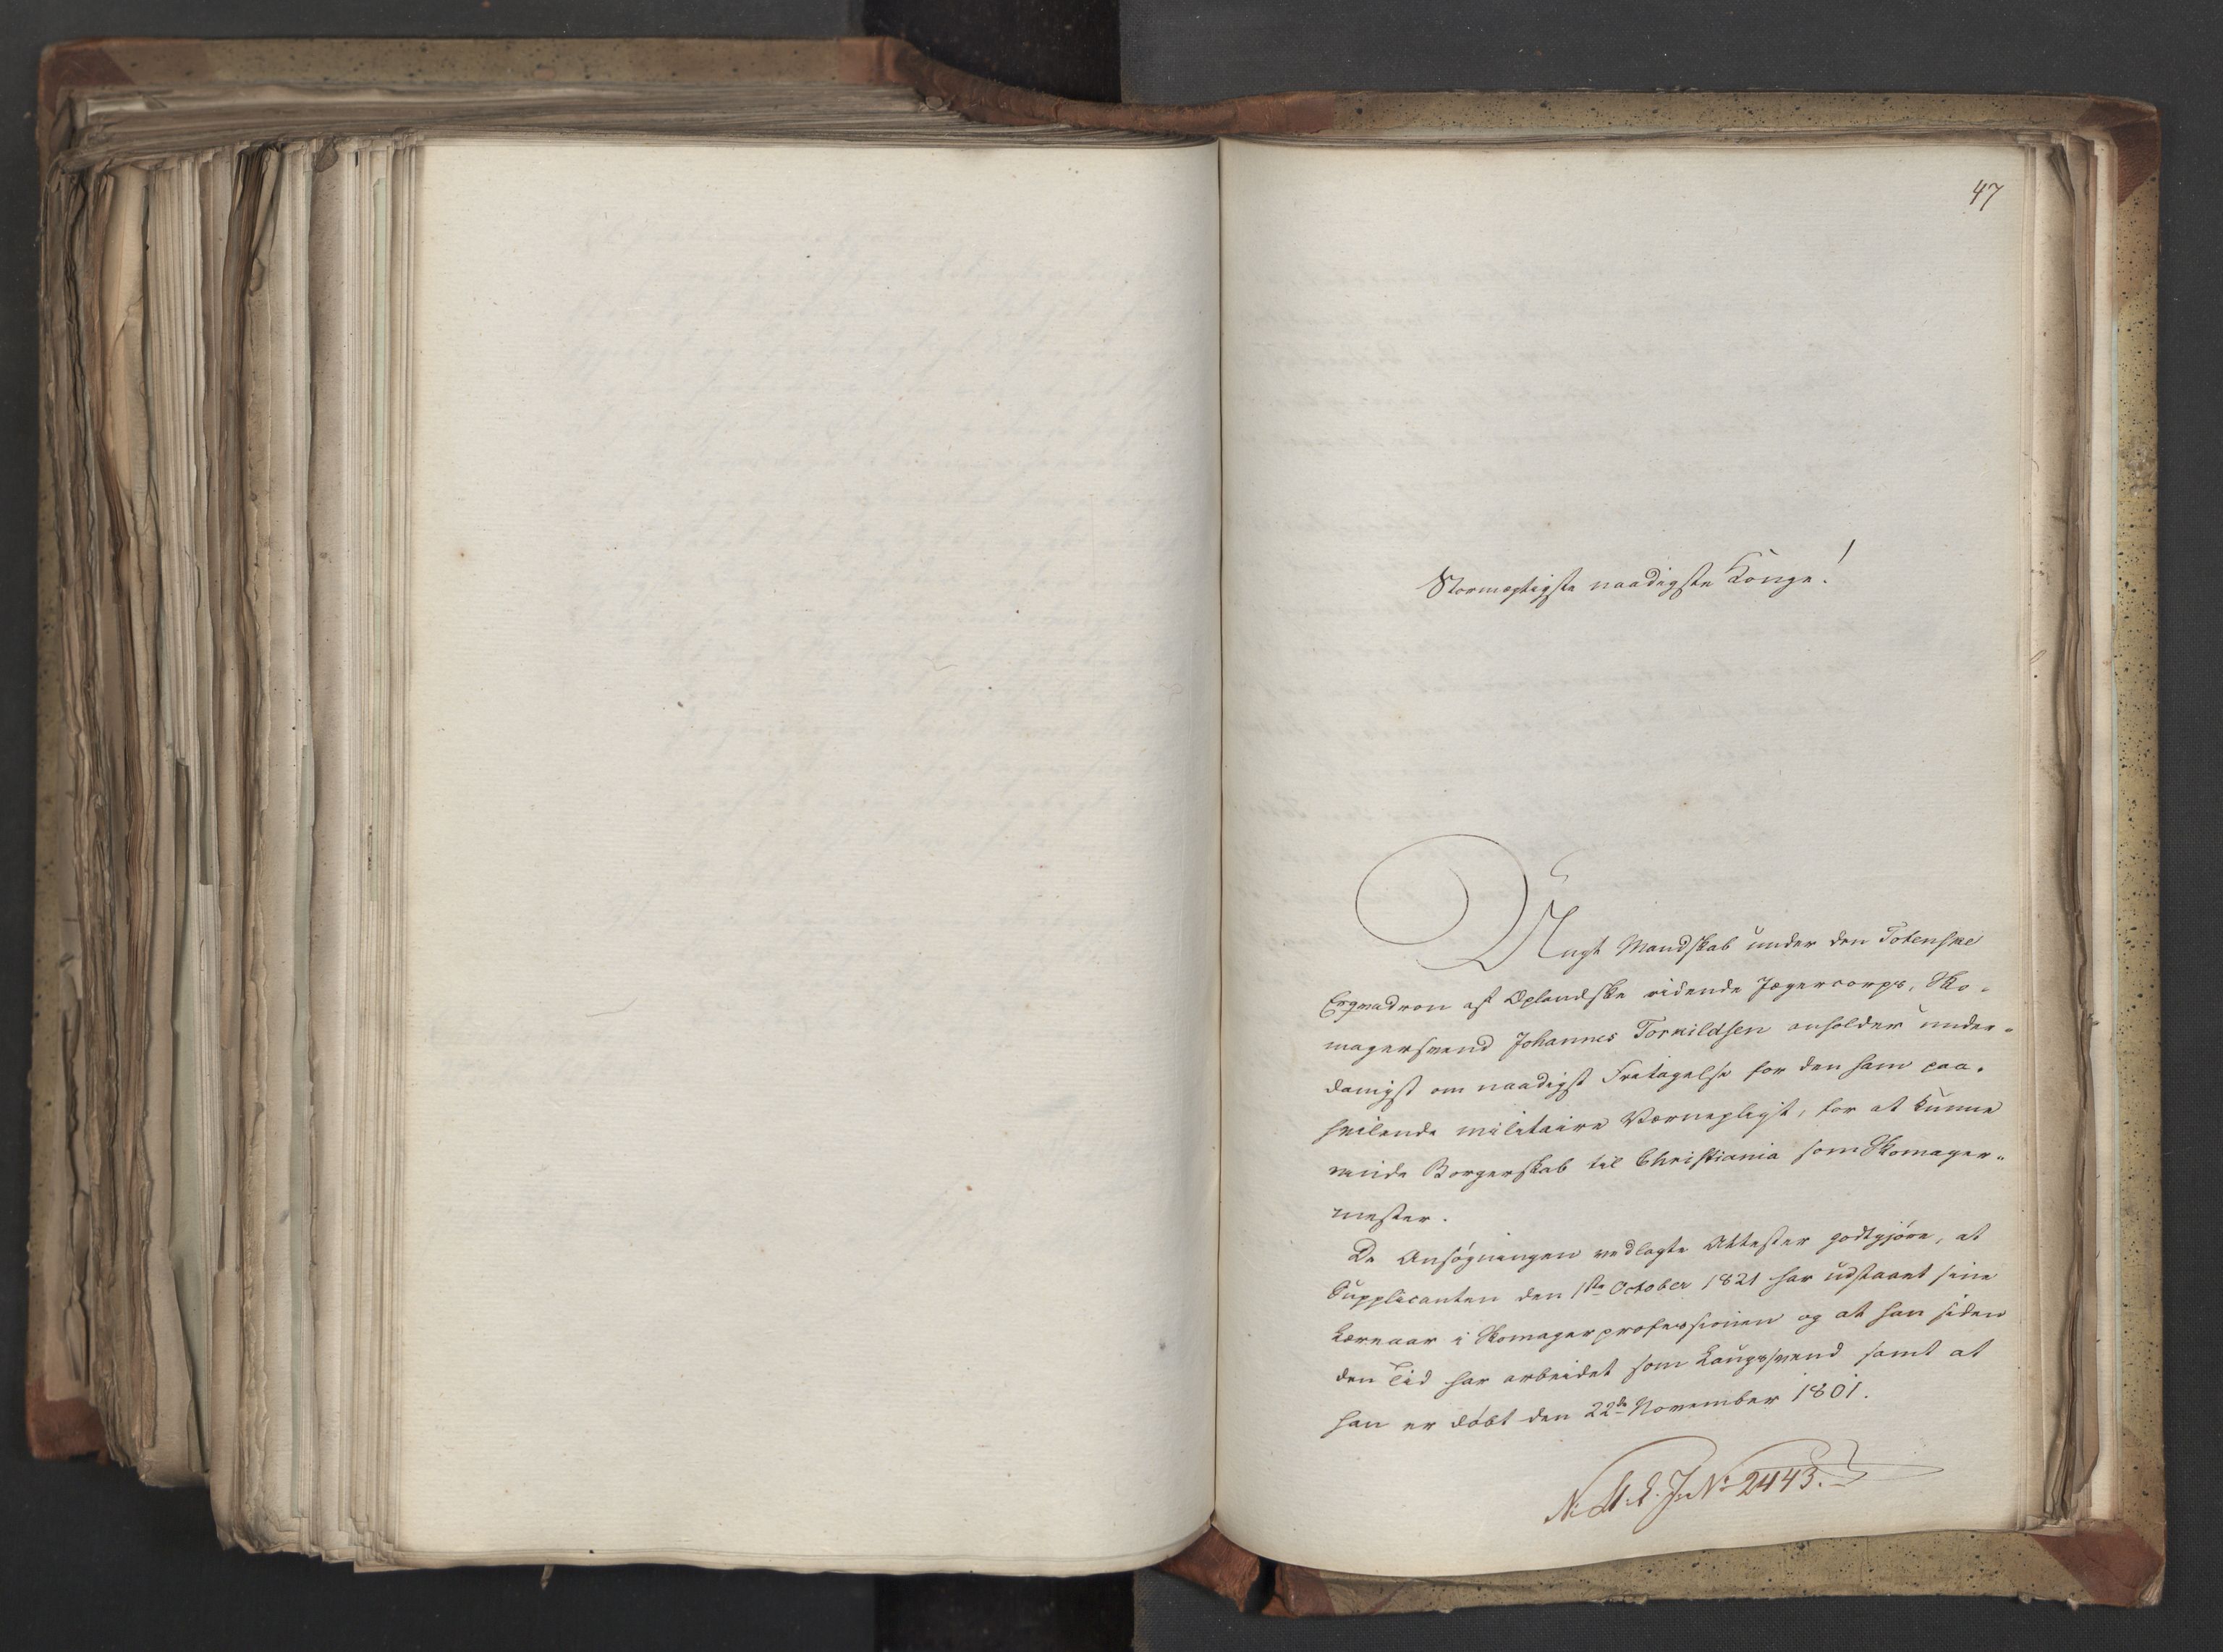 47
Stormægtigste naadigste Konge!
Ungt Mandskab under den Totenske
Esqvadron af Oplandske ridende Jægercorps, Sko-
magersvend Johannes Torkildsen anholder under-
danigst om naadigst Fritagelse for den ham paa-
hvilende militaire Værnepligt, for at kunne
vinde Borgerskab til Christiania som Skomager-
mester.
De Ansøgningen vedlagte Attester godtgjøre, at
Supplicanten den 1ste October 1821 har udstaaet sine
Læreaar i Skomagerprofessionen og at han siden
den Tid har arbeidet som Laugssvend samt at
han er døbt den 22de November 1801.
J. No 2443.